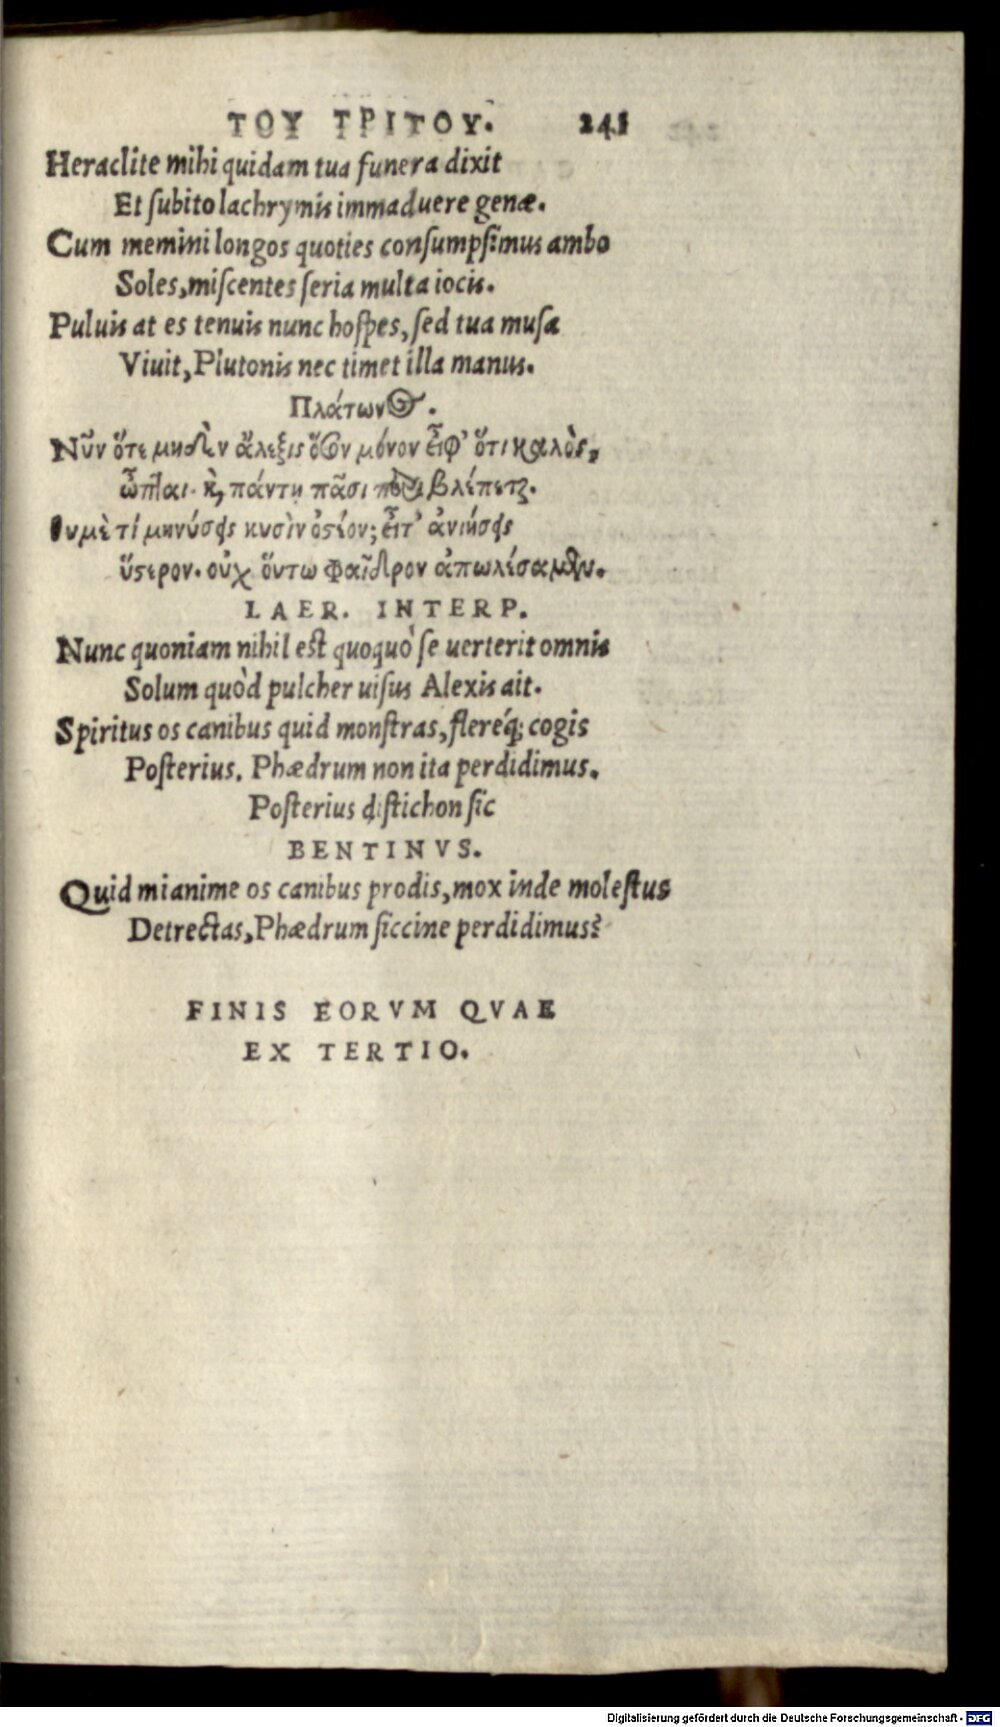 ΤΟΥ ΤΡΙΤΟΥ. 241
Heraclite mihi quidam tua funera dixit
Et ſubito lachrymis immaduere genæ.
Cum memini longos quoties conſumpſimus ambo
Soles, miſcentes ſeria multa iocis.
Puluis at es tenuis nunc hoſpes, ſed tua muſa
Viuit, Plutonis nec timet illa manus.
Πλάτωνος.
Νῦν ὅτε μηδὲν ἄλεξις ὅσον μόνον εἶφ' ὅτι καλὸς,
ὦπται. καὶ πάντη πᾶσι βλέπεται.
θυμὲ τί μηνύσεις κυσὶν ὀστέον; εἶτ' ἀνιήσεις
ὕστερον. οὐχ ὅυτω φαῖδρον ἀπωλέσαμεν.
LAER. INTERP.
Nunc quoniam nihil eſt quoquò ſe uerterit omnis
Solum quòd pulcher uiſus Alexis ait.
Spiritus os canibus quid monſtras, flereq́; cogis
Poſterius. Phædrum non ita perdidimus.
Poſterius diſtichon ſic
BENTINVS.
Quid mi anime os canibus prodis, mox inde moleſtus
Detrectas, Phædrum ſiccine perdidimus?
FINIS EORVM QVAE
EX TERTIO.
Digitalisierung gefördert durch die Deutsche Forschungsgemeinschaft - DFG